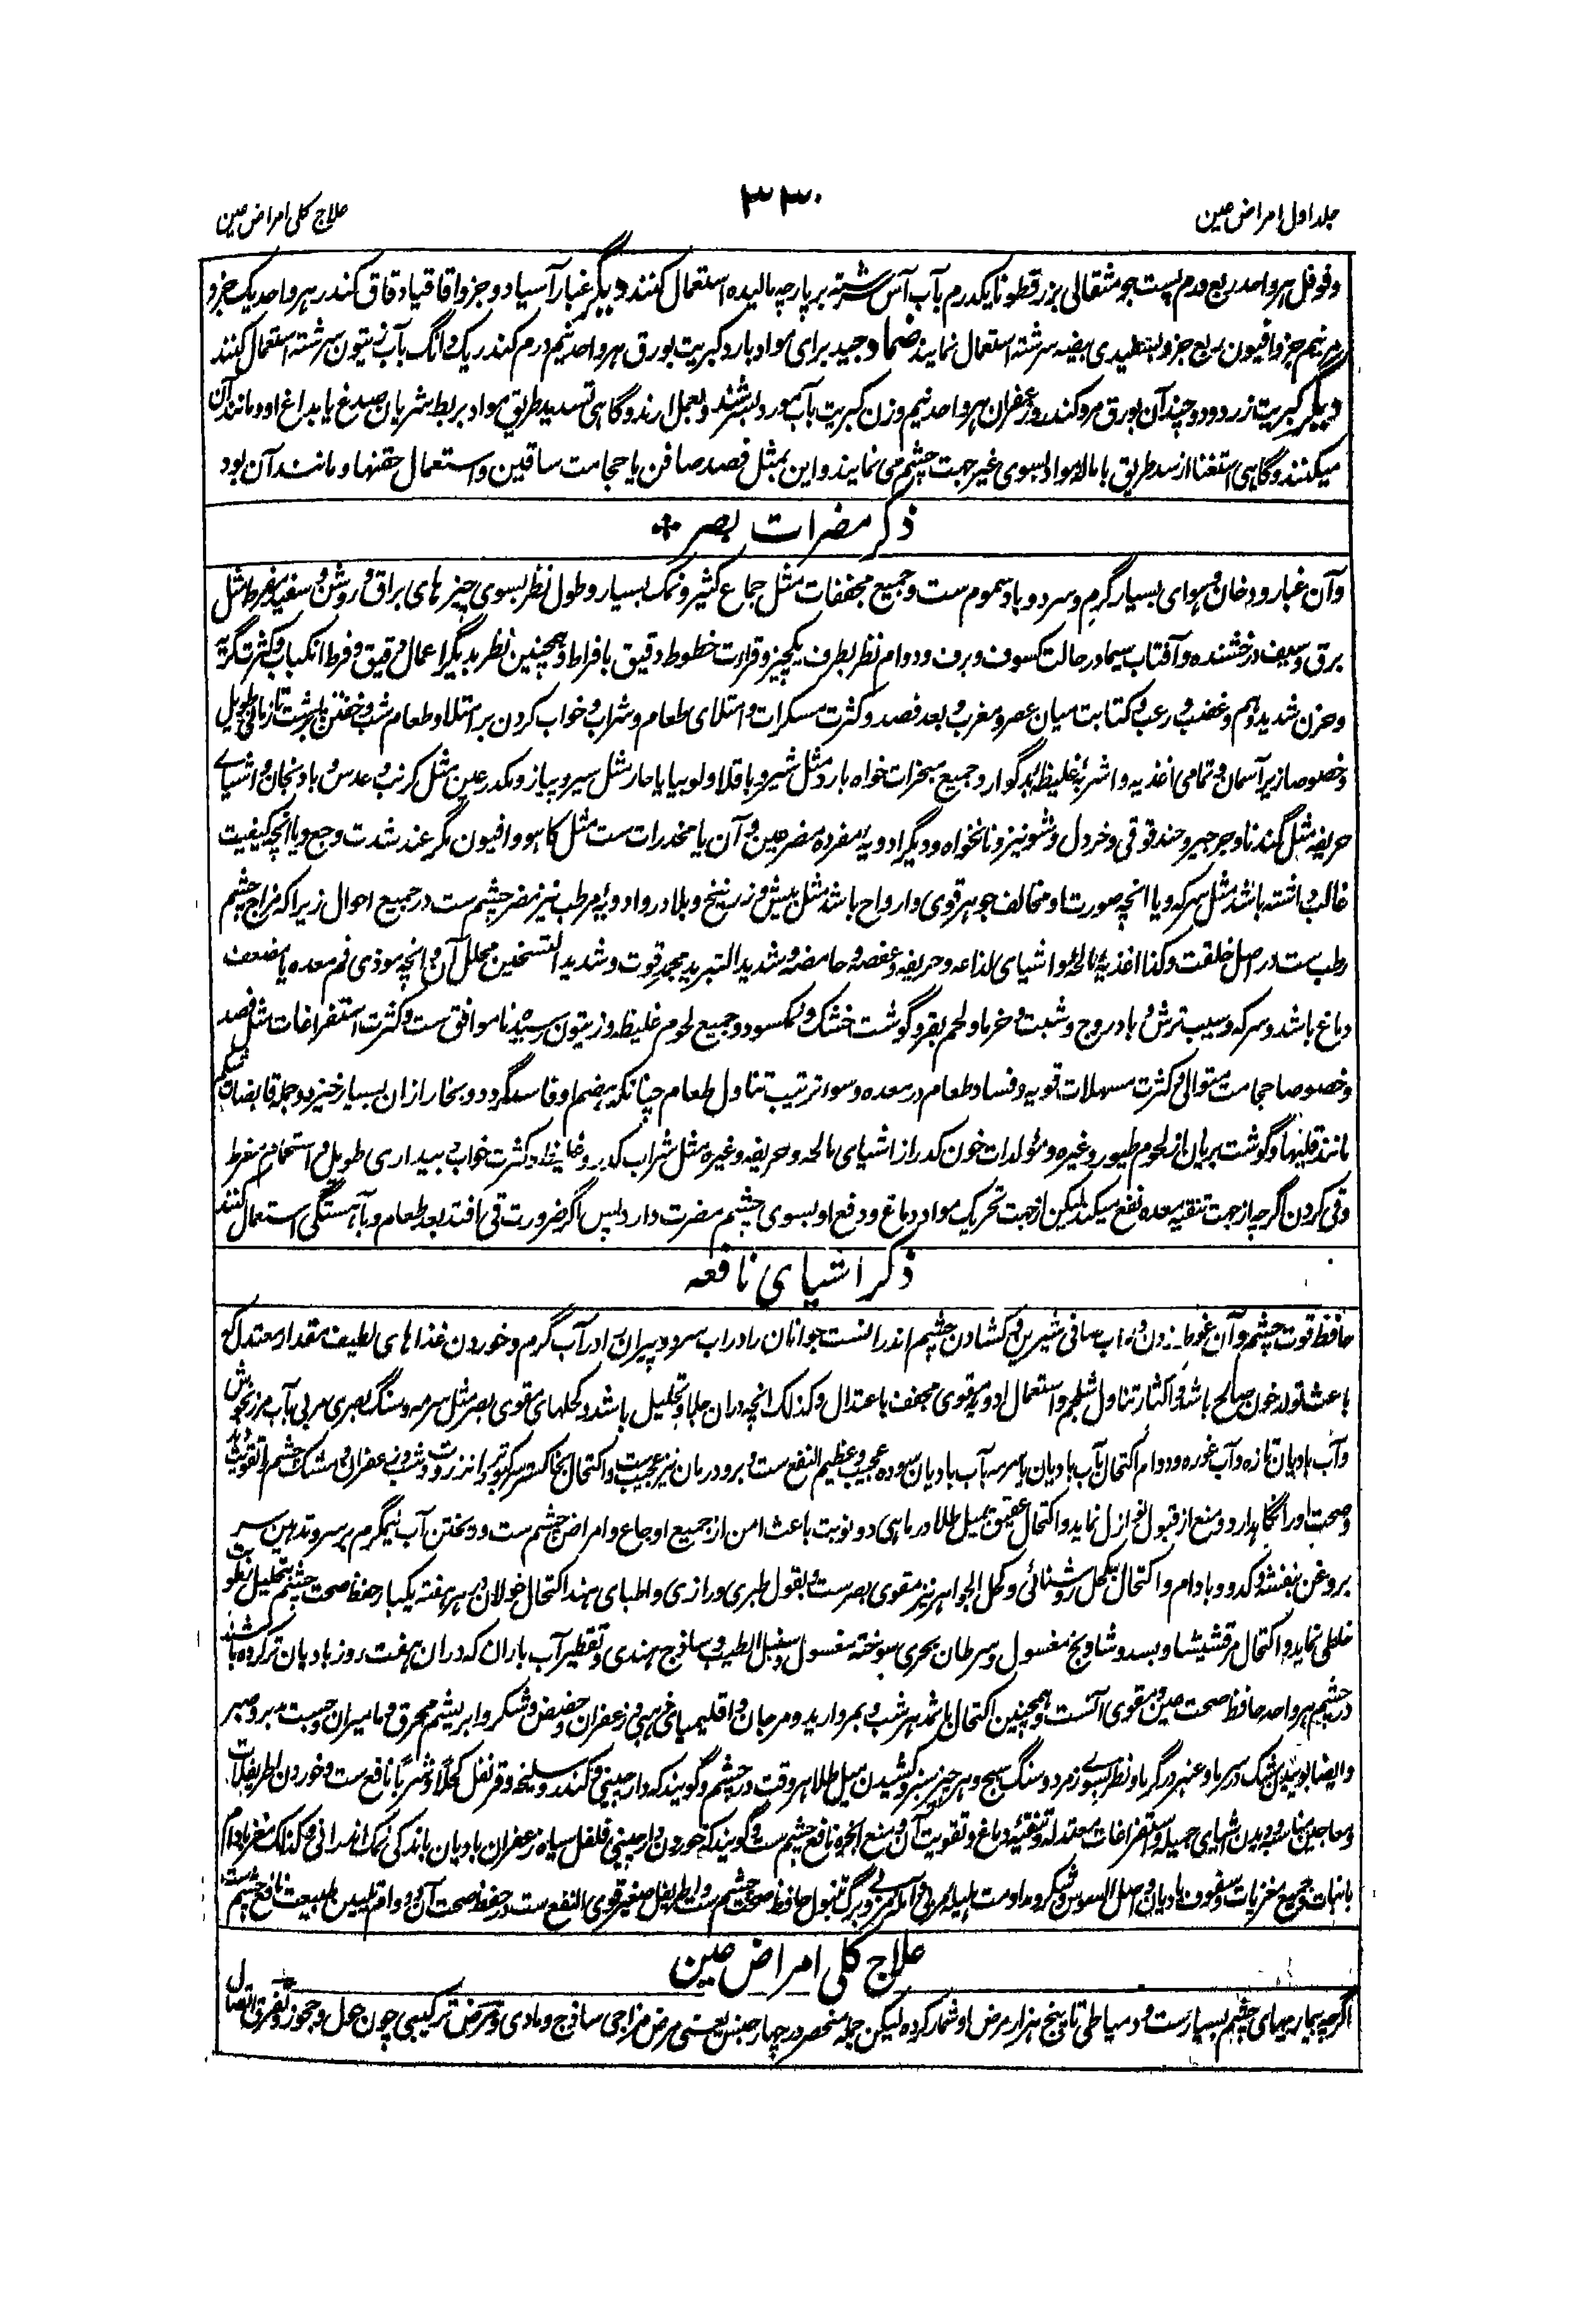 جلد اول امراض عین
۳۳۰
علاج کلی امراض عین
وفوفل هرواحد ربع درم پست جو مثقالی بزرقطونا یکدرم بآب آس سرشته برپارچه مالیده استعمال کنند دیگر غبار آسیا دو جزو اقاقیا دقاق کندر هرواحد یک جزو
مر نیم جزو افیون ربع جزو بسفیدی بیضه سرشته استعمال نمایند ضماد جید برای مواد بارد کبریت بورق هرواحد نیم درم کندر یک دانگ بآب زیتون سرشته استعمال کنند
دیگر کبریت زرد و دوچند آن بورق مر و کندر و زعفران هرواحد نیم وزن کبریت بآب مورد بسرشند و بعمل آرند و گاهی تسدید طریق مواد بربط شریان صدغ یا بداغ او و مانند آن
میکنند و گاهی استغنا از سد طریق باماله مواد بسوی غیر جهت چشم می نمایند و این بمثل فصد صافن یا حجامت ساقین و استعمال حقنها و مانند آن بود
ذکر مضرات بصر
وآن غبار و دخان و هوای بسیار گرم و سرد و باد سموم ست و جمیع مجففات مثل جماع کثیر و نمک بسیار و طول نظر بسوی چیزهای براق و روشن و سفید مفرط مثل
برق و سیف درخشنده و آفتاب سیما در حالت کسوف و برف و دوام نظر بطرف یکچیز و قراءت خطوط دقیق بافراط و همچنین نظر بدیگر اعمال دقیق و فرط انکباب و کثرت گریه
وحزن شدید و هم و غضب و رعب و کتابت میان عصر و مغرب و بعد فصد و کثرت مسکرات و امتلای طعام و شراب و خواب کردن بر امتلا و طعام شب و خفتن بر پشت تا زمانی طویل
وخصوصا زیر آسمان و تمامی اغذیه و اشربه غلیظه بدگوار و جمیع مبخرات خواه بارد مثل شیر و باقلا و لوبیا یا حار مثل سیر و پیاز و مکدر عین مثل کرنب و عدس و بادنجان و اشیای
حریفه مثل گندنا و جرجیر و حندقوقی و خردل و شونیز و نانخواه و دیگر ادویه مفرده مضر عین و آن یا مخدرات ست مثل کاهو و افیون مگر عند شدت وجع و یا انچه کیفیت
غالب داشته باشد مثل سرکه و یا انچه صورت او مخالف جوهر قوی و ارواح باشد مثل بیش و زرنیخ و بلادر و ادویه مرطب نیز مضر چشم ست در جمیع احوال زیرا که مزاج چشم
رطب ست در اصل خلقت و کذا اغذیه مالحه و اشیای لذاعه و حریفه و عفصه و حامضه و شدید التبرید مجمد قوت و شدید التسخین محلل آن و انچه موذی فم معده یا مضعف
دماغ باشد و سرکه و سیب ترش و بادروج و شبت و خرما و لحم بقر و گوشت خشک و نمکسود و جمیع لحوم غلیظه و زیتون رسیده ناموافق ست و کثرت استفراغات مثل فصد
وخصوصا حجامت متوالی و کثرت مسهلات قویه و فساد طعام در معده و سوء ترتیب تناول طعام چنانکه هضم او فاسد گردد و بخار ازان بسیار خیزد و جمله قابضات شکم
مانند قلیها و گوشت بریان از لحوم طیور و غیره و مولدات خون کدر از اشیای مالحه و حریفه و غیره مثل شراب کدر و غلیظ و کثرت خواب و بیداری طویل و استحمام مفرط
وقی کردن اگرچه از جهت تنقیه معده نفع میکند لیکن از جهت تحریک مواد دماغ و دفع او بسوی چشم مضرت دارد پس اگر ضرورت قی افتد بعد طعام و بآهستگی استعمال کنند
ذکر اشیای نافعه
حافظ قوت چشم و آن غوطه زدن در آب صافی شیرین و کشادن چشم اندرانست جوانان را در آب سرد و پیران را در آب گرم و خوردن غذاهای لطیف مقدار معتدل که
باعث تولد خون صالح باشد و اکثار تناول شلجم و استعمال ادویه مقوی مجفف باعتدال و کذلک انچه دران جلا و تحلیل باشد و کحلهای مقوی بصر مثل سرمه و سنگ بصری مربی بآب مرزنجوش
وآب بادیان تازه و آب غوره و دوام اکتحال بآب بادیان یا سرمه بآب بادیان سوده عجیب و عظیم النفع ست و برود رمان نیز عجیب ست و اکتحال بخاکستر سرگین کبوتر و انزروت و شب و زعفران و مشک چشم را تقویت دهد
وصحت او را نگاهدارد و منع از قبول نوازل نماید و اکتحال عقیق بمیل طلا در ماهی دو نوبت باعث امن از جمیع اوجاع و امراض چشم ست و ریختن آب نیمگرم بر سر و تدهین سر
بروغن بنفشه و کدو و بادام و اکتحال بکحل روشنائی و کحل الجواهر نیز مقوی بصر ست و بقول طبری و رازی و اطبای هند اکتحال خولان در هر هفته یکبار حفظ صحت چشم بتحلیل رطوبت
خلطی نماید و اکتحال مرقشیشا و بسد و شادنج مغسول و سرطان بحری سوخته مغسول و سنبل الطیب و ساذج هندی و تقطیر آب باران که دران هفت روز بادیان تر کرده باشند
در چشم هرواحد حافظ صحت عین و مقوی آنست و همچنین اکتحال باثمد هر شب و بمروارید و مرجان و اقلیمیای ذهبی و زعفران و حضض و شکر و ابریشم محرق و مامیران و صبر
وایضا بوئیدن مشک در سرما و عنبر در گرما و نظر بسوی زمرد و سنگ سبج و هر چیز سبز و کشیدن میل طلا هر وقت در چشم و گویند که دارچینی و کندر و سلیخه و قرنفل کحلا و شربا نافع ست و خوردن اطریفلات
ومعاجین مناسب و دیدن اشیای جمیله و استفراغات معتدله و تنقیه دماغ و تقویت آن و منع ابخره نافع چشم ست و گویند که خوردن دارچینی فلفل سیاه زعفران بادیان باندکی نمک اندرانی و کذلک مغز بادام
بانبات و جمیع مغزیات و سفوف بادیان و اصل السوس و شکر و مداومت هلیله مربی و آمله مربی و برگ تنبول حافظ صحت چشم ست و اطریفل صغیر قوی النفع ست در حفظ صحت آن و دوام تلیین طبیعت نافع چشم ست
علاج کلی امراض عین
اگرچه بیماریهای چشم بسیارست و دمیاطی تا پنج هزار مرض او شمار کرده لیکن جمله منحصر در چهار جنس یعنی مرض مزاجی ساذج و مادی و مرض ترکیبی چون حول و جحوظ و تفرق اتصال